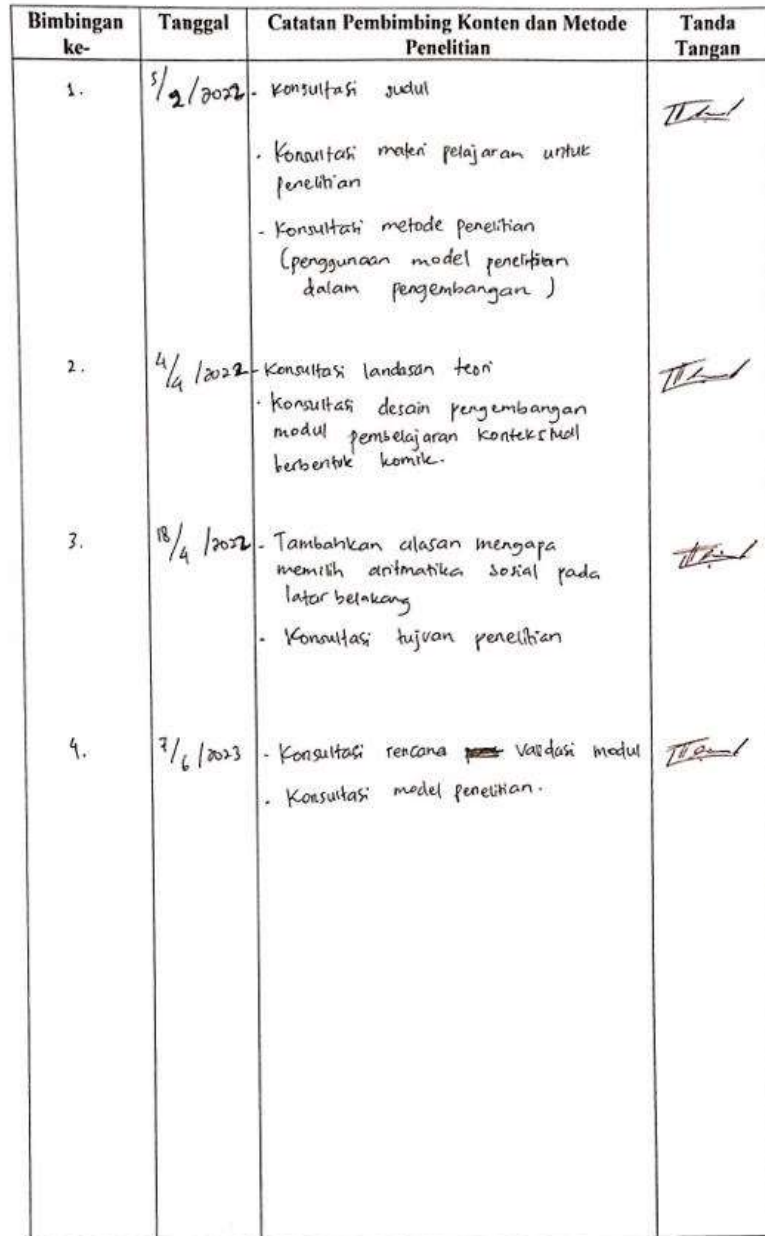 Bimbingan ke-
Tanggal
Catatan Pembimbing Konten dan Metode Penelitian
Tanda Tangan
1.
5/2/2022
- Konsultasi judul
- Konsultasi materi pelajaran untuk
penelitian
- Konsultasi metode penelitian
(penggunaan model penelitian
dalam pengembangan)
2.
4/4/2022
- Konsultasi landasan teori
- Konsultasi desain pengembangan
modul pembelajaran kontekstual
berbentuk komik.
3.
18/4/2022
- Tambahkan alasan mengapa
memilih aritmatika sosial pada
latar belakang
- Konsultasi tujuan penelitian
4.
7/6/2023
- Konsultasi rencana validasi modul
- Konsultasi model penelitian.